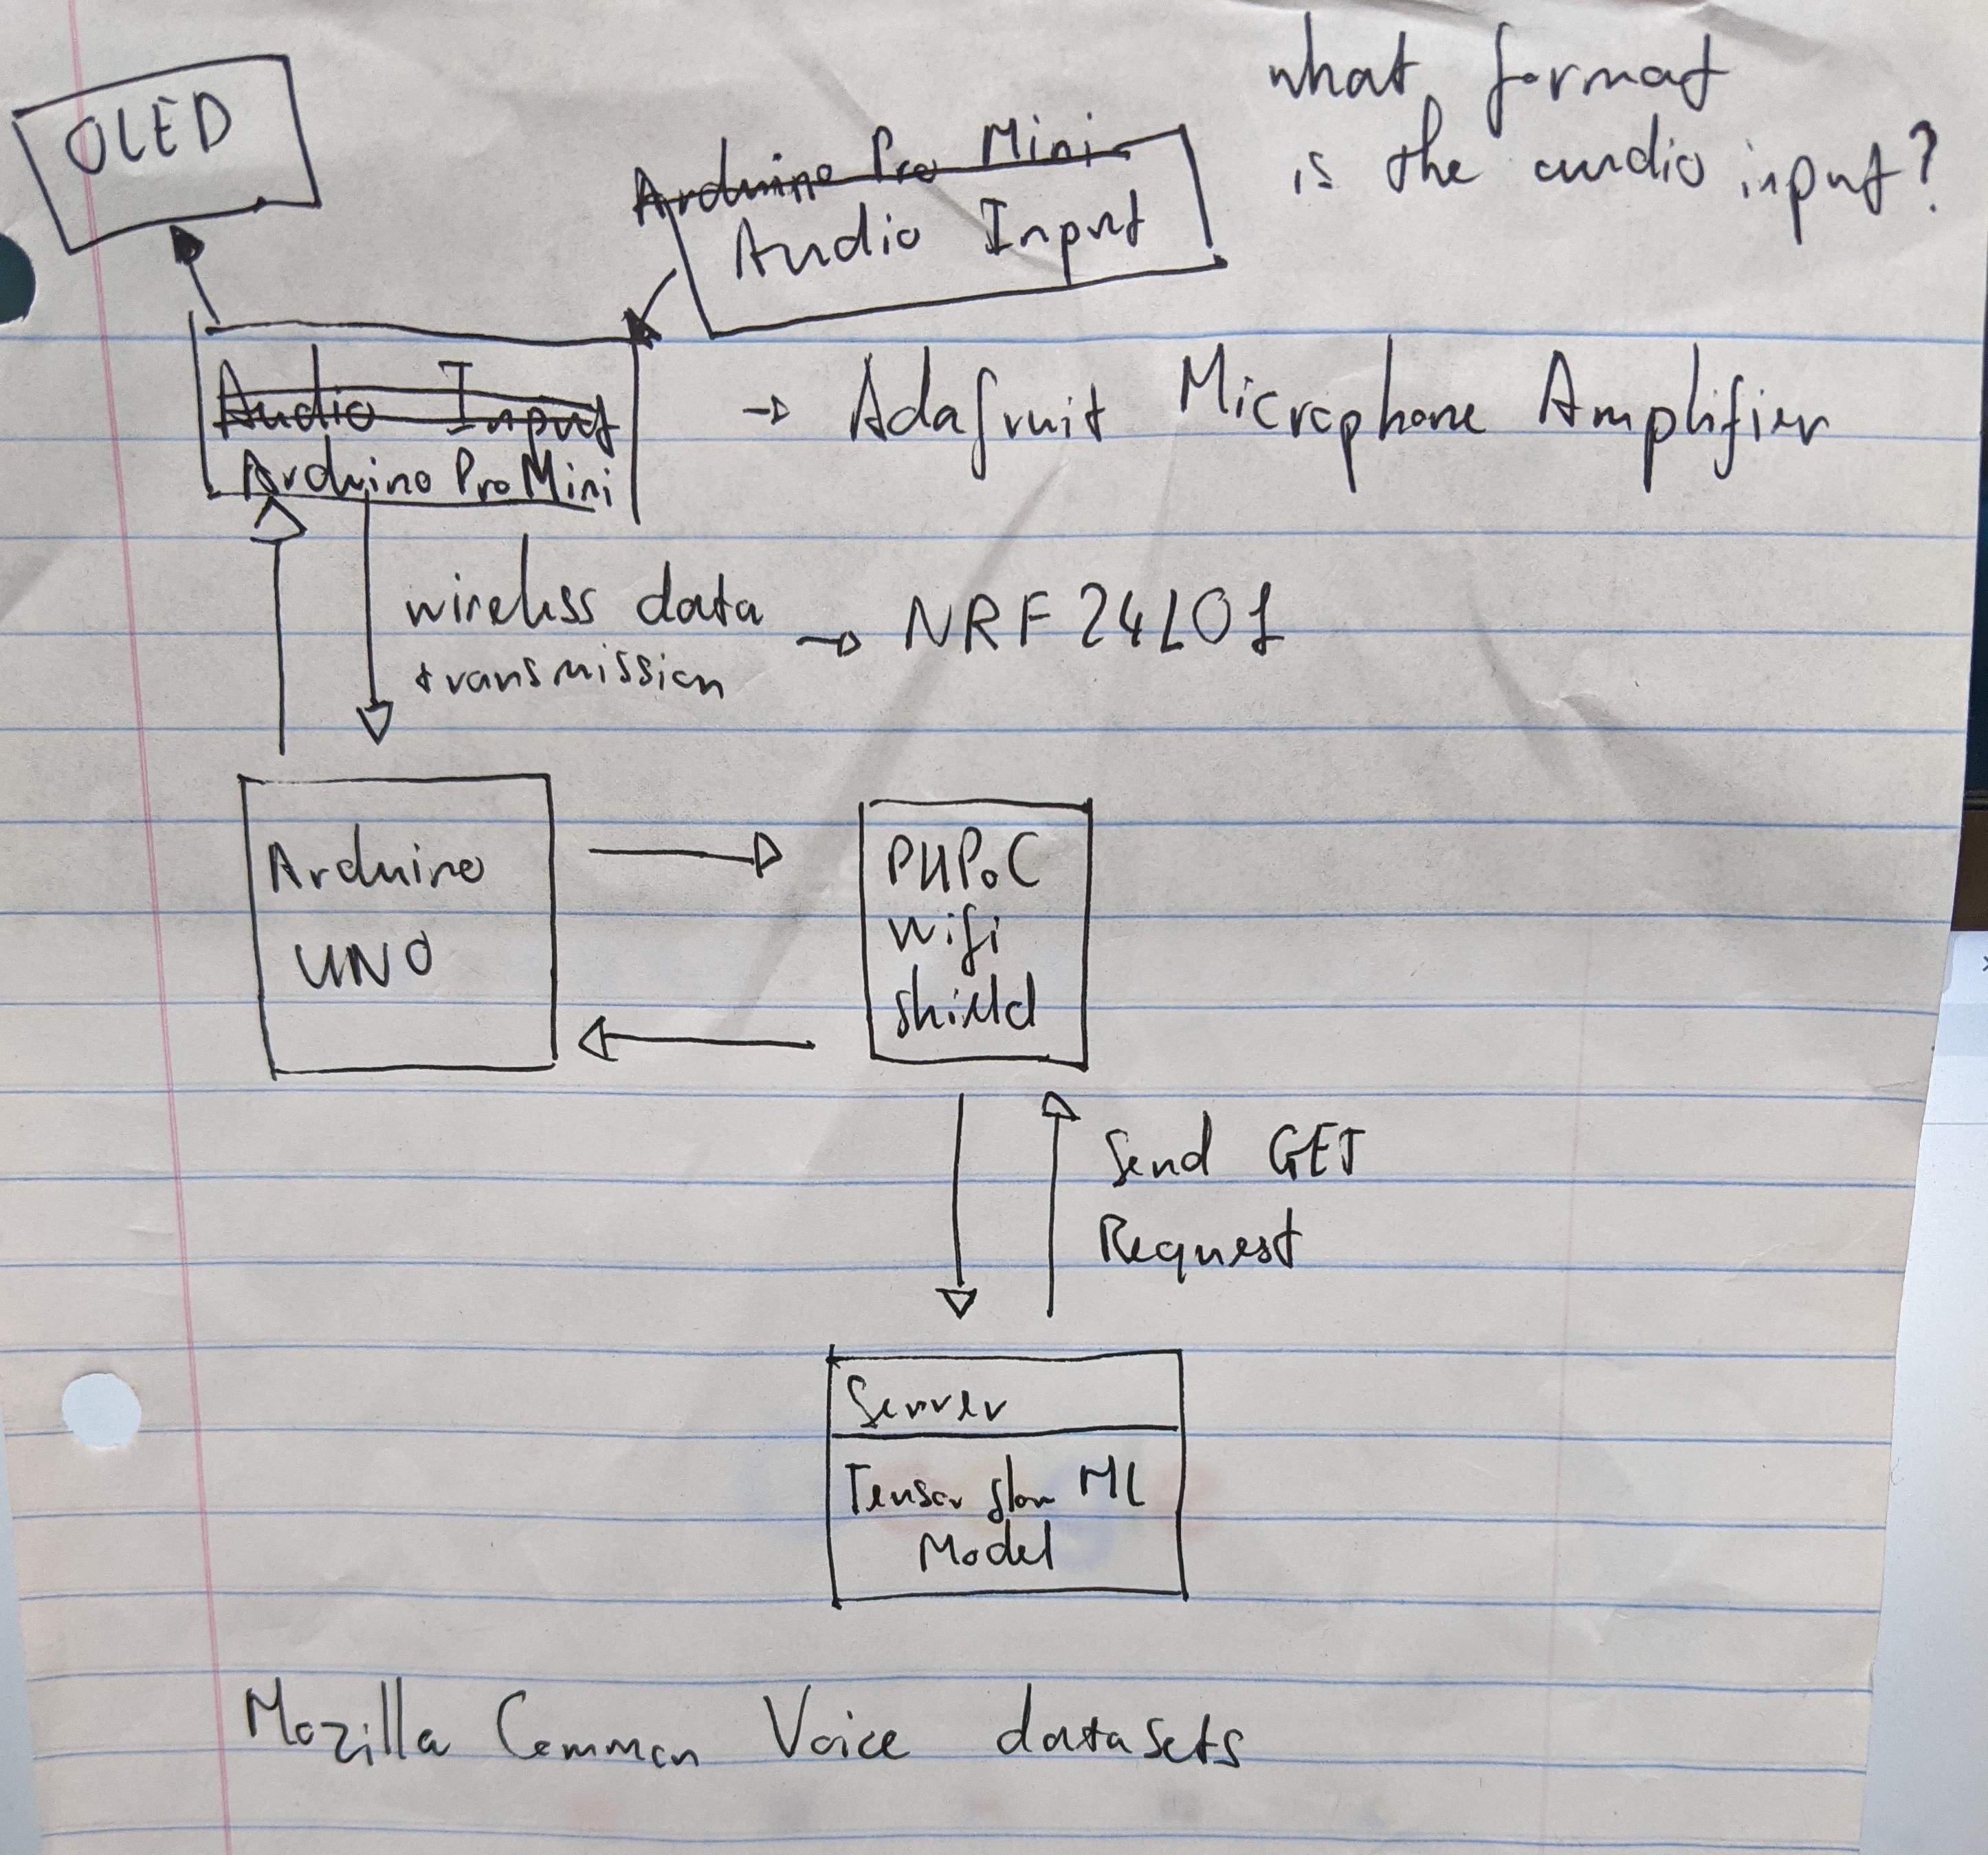 what format
is the audio input?
OLED
Arduino Pro Mini
Audio Input
Audio Input
Arduino Pro Mini
-> Adafruit Microphone Amplifier
wireless data
transmission
-> NRF24L01
Arduino
UNO
PHPoC
wifi
shield
Send GET
Request
Server
Tensorflow ML
Model
Mozilla Common Voice datasets